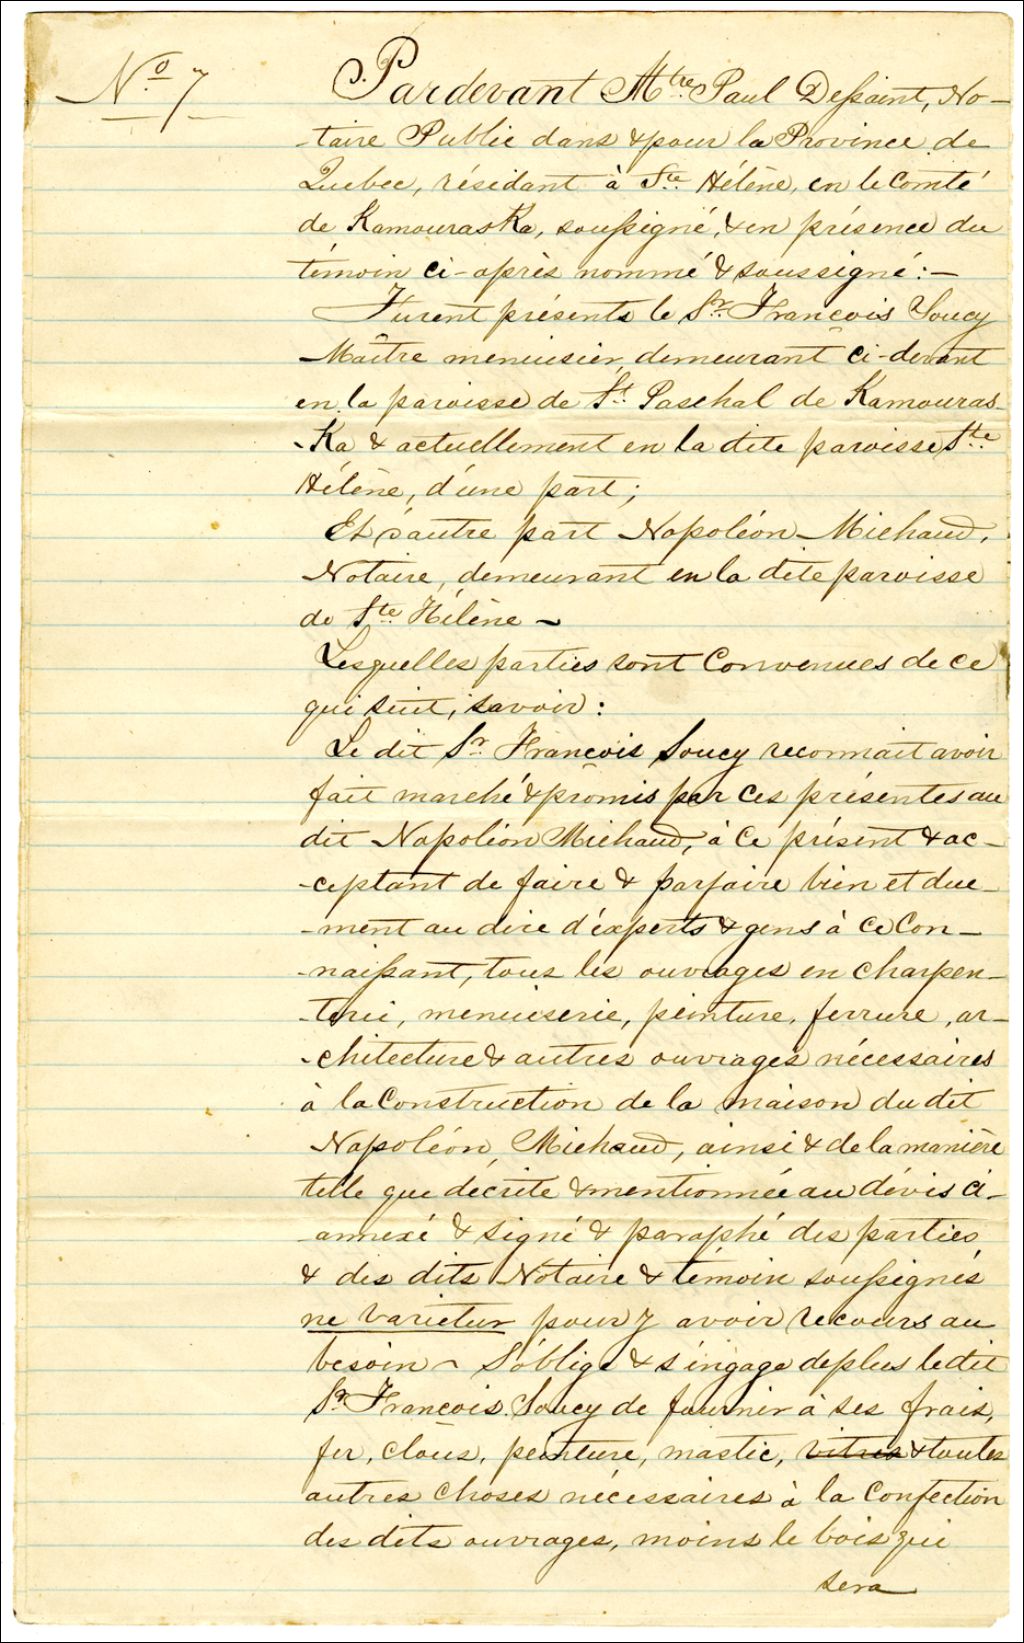 No 7
Pardevant Mtre Paul Dessaint, No-
-taire Public dans & pour la Province de
Quebec, résidant à Ste Hélène, en le Comté
de Kamouraska, soussigné, & en présence du
témoin ci-après nommé & soussigné :-
Furent présents le Sr. François Soucy
Maître menuisier, demeurant ci-devant
en la paroisse de St. Paschal de Kamouras-
-Ka & actuellement en la dite paroisse Ste
Hélène, d'une part ;
Et d'autre part Napoléon Michaud,
Notaire, demeurant en la dite paroisse
de Ste Hélène -
Lesquelles parties sont Convenues de ce
qui suit, savoir :
Le dit Sr. François Soucy reconnait avoir
fait marché & promis par ces présentes au
dit Napoléon Michaud, à ce présent & ac-
-ceptant de faire & parfaire bien et due-
-ment au dire d'experts & gens à ce Con-
-naissant, tous les ouvrages en charpen-
-terie, menuiserie, peinture, ferrure, ar-
-chitecture & autres ouvrages nécessaires
à la Construction de la maison du dit
Napoléon Michaud, ainsi & de la manière
telle que décrite & mentionnée au dévis ci-
-annexé & signé & paraphé des parties
& des dits Notaire & témoin soussignés
ne varietur pour y avoir recours au
besoin - S'oblige & s'engage de plus le dit
Sr. François Soucy de fournir à ses frais,
fer, clous, peinture, mastic, vitres & toutes
autres choses nécessaires à la Confection
des dits ouvrages, moins le bois qui
sera